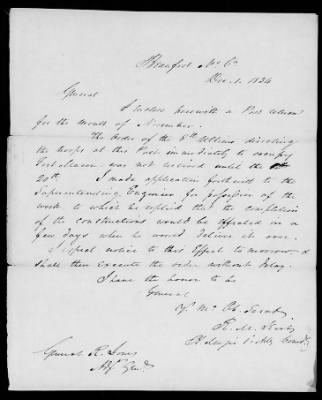 Beaufort No. Ca.
Dec. 1. 1834
General
I enclose herewith a Post return
for the month of November.
The order of the 8th Ultimo directing
the troops at this Post immediately to occupy
Fort Macon was not received until the
20th. I made application forthwith to the
Superintending Engineer for possession of the
work to which he replied that the completion
of the constructions would be effected in a
few days when he would deliver it over.
I expect notice to this effect to morrow, &
shall then execute the order without delay.
I have the honor to be
General
Yr. Mo. Ob. Servt.
R. M. Kirby
Bt. Major 1st Arty. Comdg.
General R. Jones
Adjt. Genl.